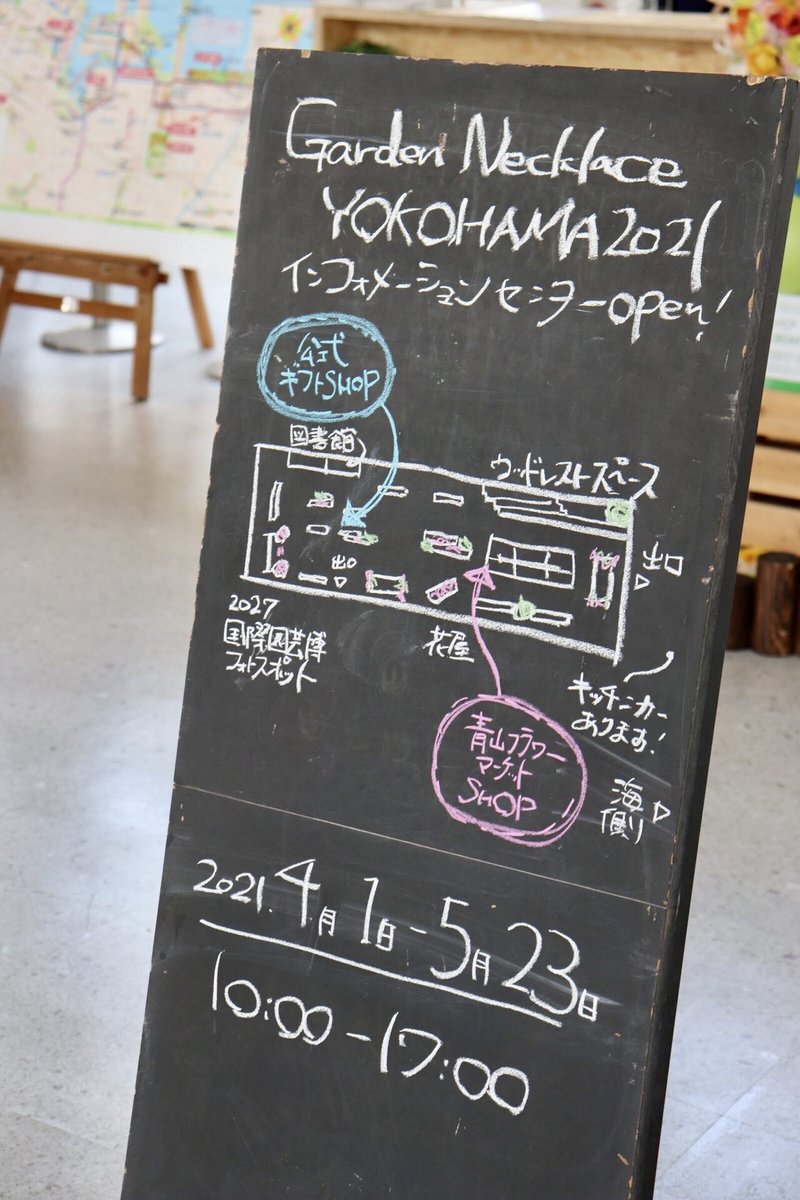 Garden Necklace
YOKOHAMA 2021
インフォメーションセンターopen!
公式
ギフトSHOP
図書館
ウッドレストスペース
出口
出口
2027
国際園芸博
フォトスポット
花屋
キッチンカー
あります!
青山フラワー
マーケット
SHOP
海
側
2021.4月1日-5月23日
10:00-17:00